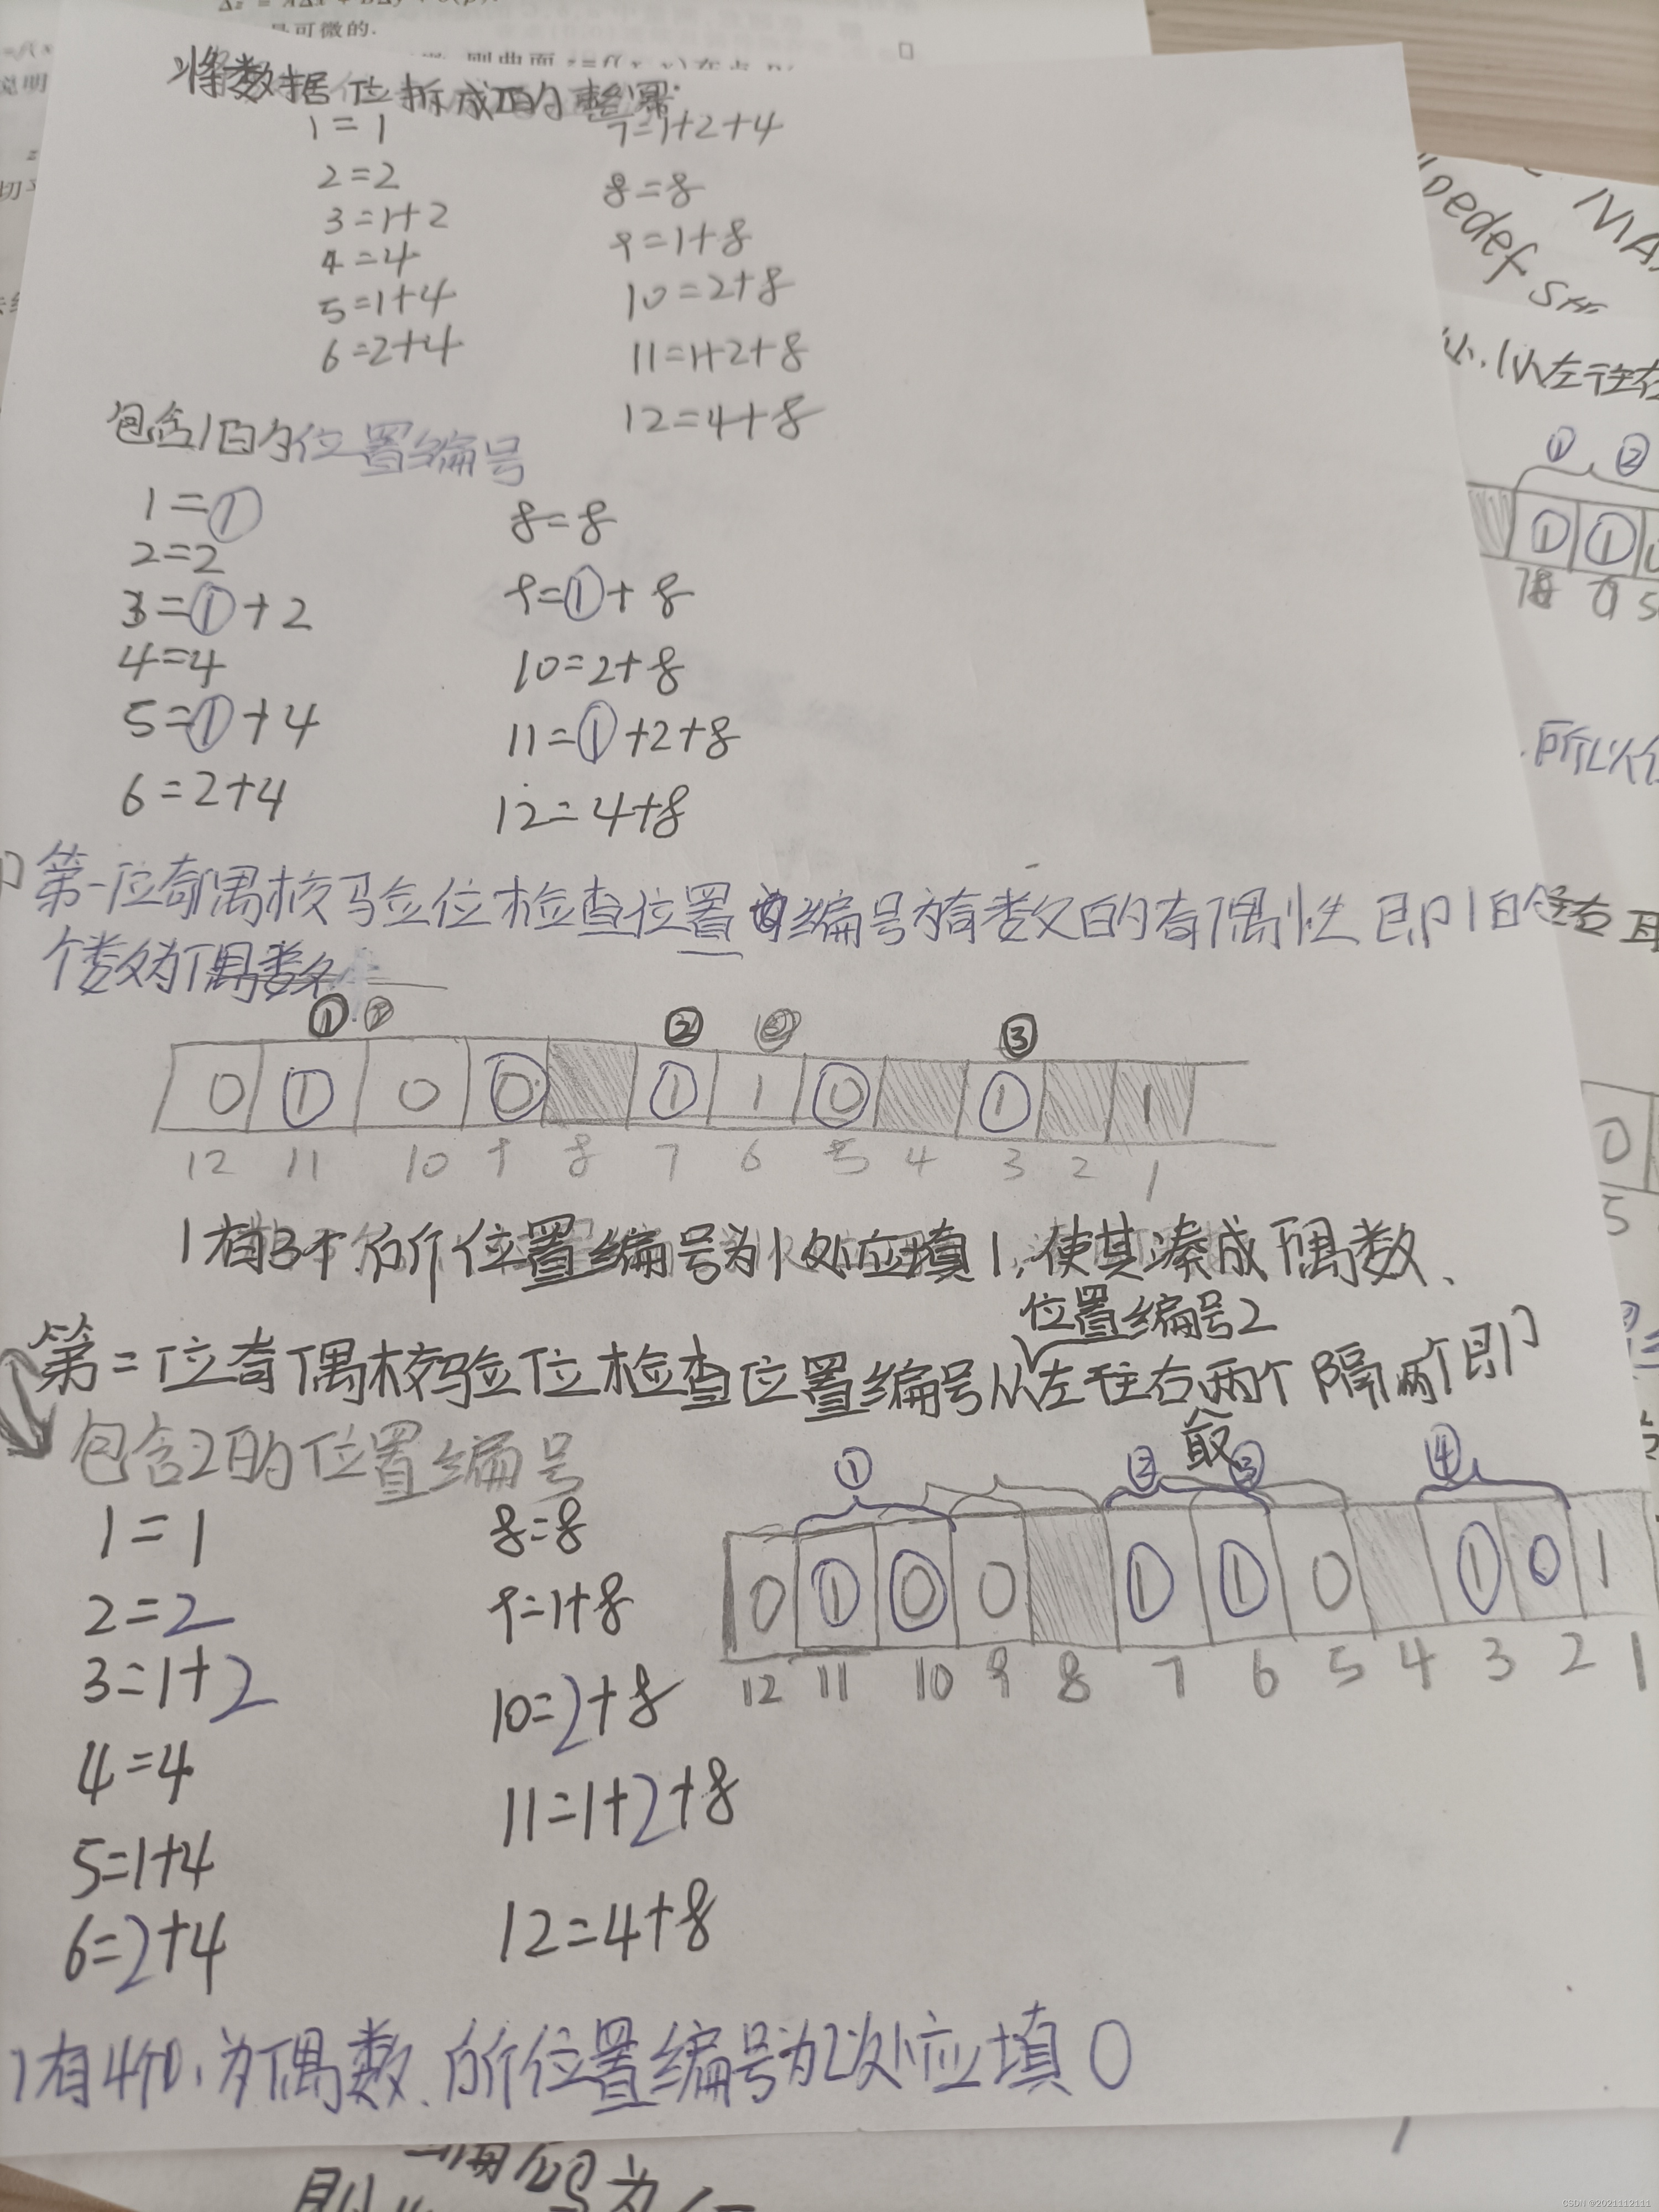 是可微的.
将数据位拆成2的整幂
1=1
2=2
3=1+2
4=4
5=1+4
6=2+4
7=1+2+4
8=8
9=1+8
10=2+8
11=1+2+8
12=4+8
包含1的位置编号
1=①
2=2
3=①+2
4=4
5=①+4
6=2+4
8=8
9=①+8
10=2+8
11=①+2+8
12=4+8
第一位奇偶校验位检查位置编号为奇数的奇偶性 即1的
个数为偶数
① ② ③
0 1 0 0 1 1 0 1 1
12 11 10 9 8 7 6 5 4 3 2 1
1有3个 所位置编号为1处应填1,使其凑成偶数、
位置编号2
第二位奇偶校验位检查位置编号从左往右两个隔两个即
取
包含2的位置编号
1=1
2=2
3=1+2
4=4
5=1+4
6=2+4
8=8
9=1+8
10=2+8
11=1+2+8
12=4+8
① ② ③ ④
0 1 0 0 1 1 0 1 0 1
12 11 10 9 8 7 6 5 4 3 2 1
1有4个,为偶数、所位置编号为2处应填0
小.从左往右
① ②
所以位
0
5
CSDN @2021112111